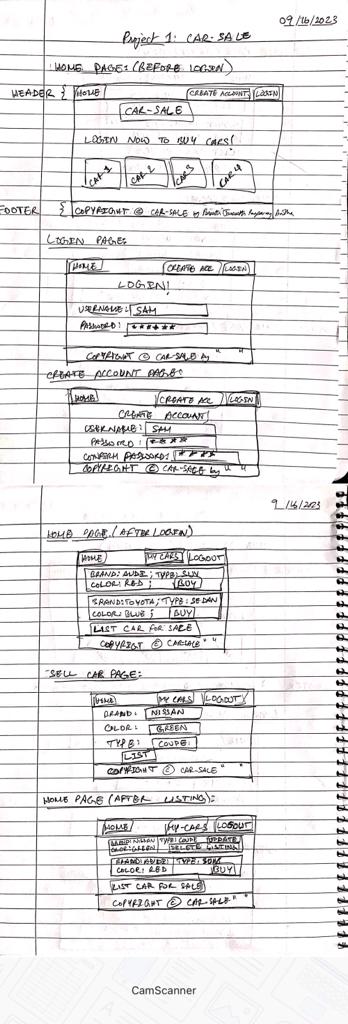 09/16/2023
Project 1: CAR-SALE
HOME PAGE: (BEFORE LOGIN)
HEADER { HOME CREATE ACCOUNT LOGIN
CAR-SALE
LOGIN NOW TO BUY CARS!
CAR 1 CAR 2 CAR 3 CAR 4
FOOTER { COPYRIGHT © CAR-SALE by
LOGIN PAGE:
HOME CREATE ACC LOGIN
LOGIN!
USERNAME: SAM
PASSWORD: ******
COPYRIGHT © CAR-SALE by " "
CREATE ACCOUNT PAGE:
HOME CREATE ACC LOGIN
CREATE ACCOUNT!
USERNAME: SAM
PASSWORD: ****
CONFIRM PASSWORD: ****
COPYRIGHT © CAR-SALE by " "
9/16/2023
HOME PAGE (AFTER LOGIN)
HOME MY CARS LOGOUT
BRAND: AUDI; TYPE: SUV
COLOR: RED; BUY
BRAND: TOYOTA; TYPE: SEDAN
COLOR: BLUE; BUY
LIST CAR FOR SALE
COPYRIGT © CARSALE " "
SELL CAR PAGE:
HOME MY CARS LOGOUT
BRAND: NISSAN
COLOR: GREEN
TYPE: COUPE
LIST
COPYRIGHT © CAR-SALE " "
HOME PAGE (AFTER LISTING):
HOME MY-CARS LOGOUT
BRAND: NISSAN TYPE: COUPE UPDATE
COLOR: GREEN DELETE LISTING
BRAND: AUDI TYPE: SUV
COLOR: RED BUY
LIST CAR FOR SALE
COPYRIGHT © CAR-SALE " "
CamScanner